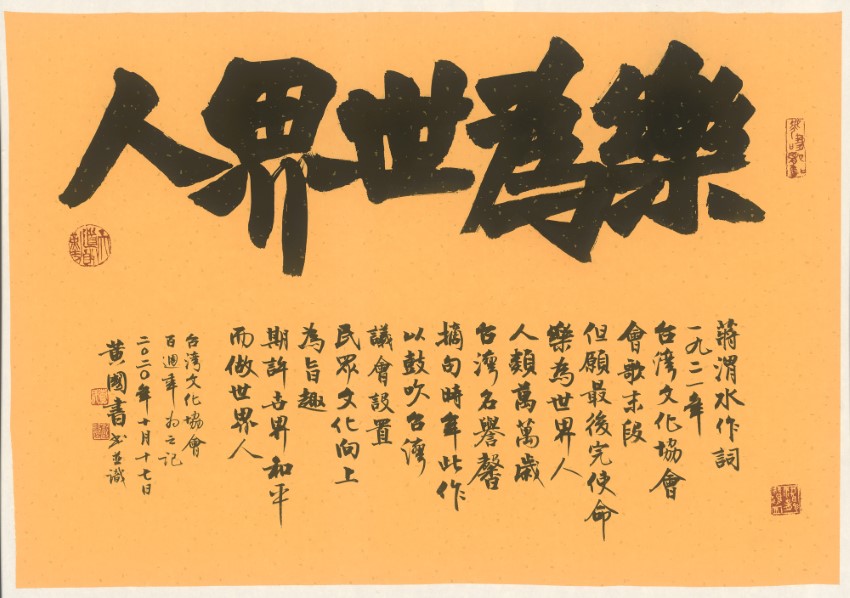 樂為世界人
蔣渭水作詞
一九二一年
台灣文化協會
會歌末段
但願最後完使命
樂為世界人
人類萬萬歲
台灣名譽馨
摘句時年此作
以鼓吹台灣
議會設置
民眾文化向上
為旨趣
期許世界和平
而做世界人
台灣文化協會
百週年 為之記
二〇二〇年十月十七日
黃國書 書並識